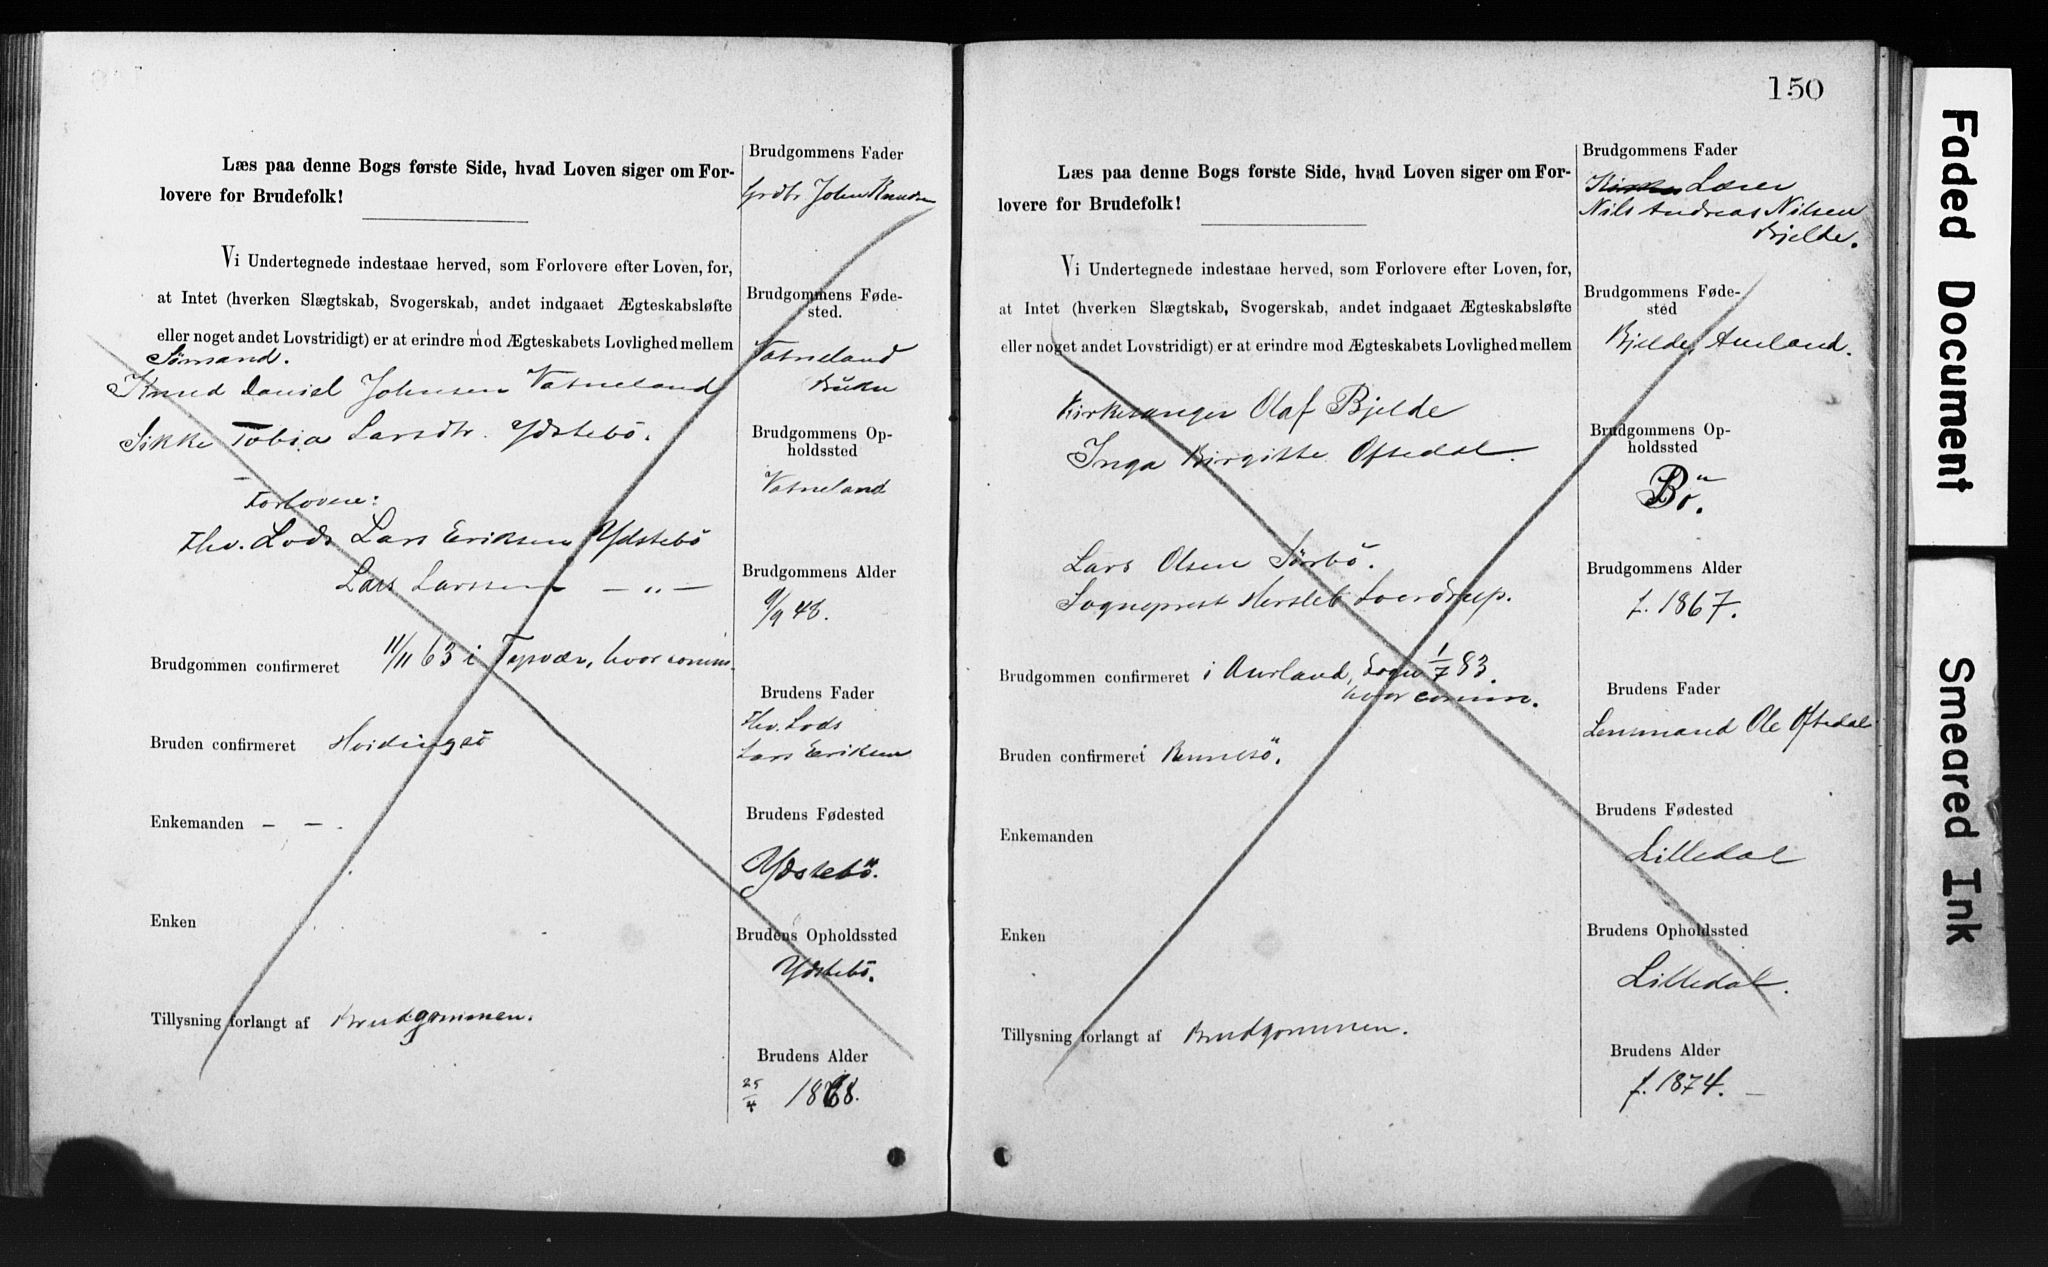 Læs paa denne Bogs første Side, hvad Loven siger om For-
lovere for Brudefolk!
Vi Undertegnede indestaae herved, som Forlovere efter Loven, for,
at Intet (hverken Slægtskab, Svogerskab, andet indgaaet Ægteskabsløfte
eller noget andet Lovstridigt) er at erindre mod Ægteskabets Lovlighed mellem
Sömand.
Knud Daniel Johnsen Vatneland
Sikke Tobia Larsdtr. Ydstebö.
Forlovere:
Fhv. Lods Lars Eriksen Ydstebö
Lars Larssen — " —
Brudgommen confirmeret 11/11 63 i Tysvær, hvor comm.
Bruden confirmeret Hvidingsö
Enkemanden — — .
Enken
Tillysning forlangt af Brudgommen.
Brudgommens Fader
Grdbr John Knudsen
Brudgommens Føde-
sted.
Vatneland
Bukn
Brudgommens Op-
holdssted
Vatneland
Brudgommens Alder
9/9 48.
Brudens Fader
Fhv. Lods
Lars Eriksen
Brudens Fødested
Ydstebö.
Brudens Opholdssted
Ydstebö.
Brudens Alder
25/4 1868.
150
Læs paa denne Bogs første Side, hvad Loven siger om For-
lovere for Brudefolk!
Vi Undertegnede indestaae herved, som Forlovere efter Loven, for,
at Intet (hverken Slægtskab, Svogerskab, andet indgaaet Ægteskabsløfte
eller noget andet Lovstridigt) er at erindre mod Ægteskabets Lovlighed mellem
Kirkesanger Olaf Bjelde
Inga Birgitte Oftedal.
Lars Olsen Sörbö.
Sogneprest Hersleb Sverdrup.
Brudgommen confirmeret i Aurland, Sogn 1/7 83.
hvor comm.
Bruden confirmeret Rennesö.
Enkemanden
Enken
Tillysning forlangt af Brudgommen.
Brudgommens Fader
Lærer
Nils Andreas Nilsen
Bjelde.
Brudgommens Føde-
sted
Bjelde, Aurland.
Brudgommens Op-
holdssted
Bö.
Brudgommens Alder
f. 1867.
Brudens Fader
Lensmand Ole Oftedal
Brudens Fødested
Lilledal
Brudens Opholdssted
Lilledal.
Brudens Alder
f. 1874. —
Faded Document
Smeared Ink